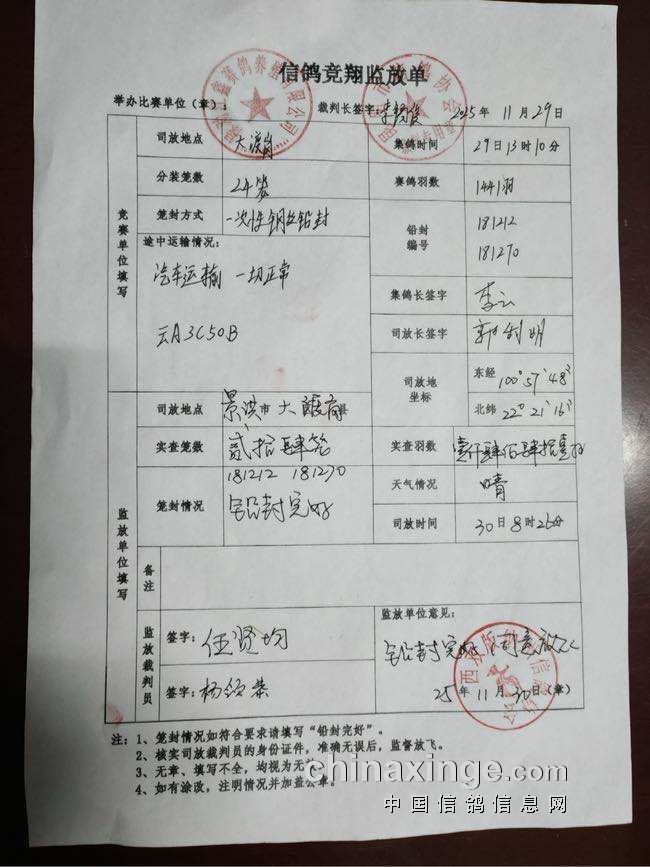 信鸽竞翔监放单
举办比赛单位（章）： 裁判长签字： 2025年 11月 29日
竞赛单位填写
司放地点 大渡岗 集鸽时间 29日13时10分
分装笼数 24笼 赛鸽羽数 1441羽
笼封方式 一次性钢丝铅封 铅封编号 181212 181270
途中运输情况：
汽车运输 一切正常
云A3C50B
集鸽长签字 李云
司放长签字 郭利明
司放地坐标 东经 100°57′48″
北纬 22°21′16″
监放单位填写
司放地点 景洪市 大渡岗县
实查笼数 贰拾肆笼 实查羽数 壹仟肆佰肆拾壹羽
笼封情况 181212 181270
铅封完好
天气情况 晴
司放时间 30日8时26分
备注
监放裁判员
签字：伍贤均
签字：杨
监放单位意见：
铅封完好 同意放飞
25年11月30日（章）
注：1、笼封情况如符合要求请填写“铅封完好”。
2、核实司放裁判员的身份证件，准确无误后，监督放飞。
3、无章、填写不全，均视为无
4、如有涂改，注明情况并加盖公章。
chinaxinge.com
中国信鸽信息网